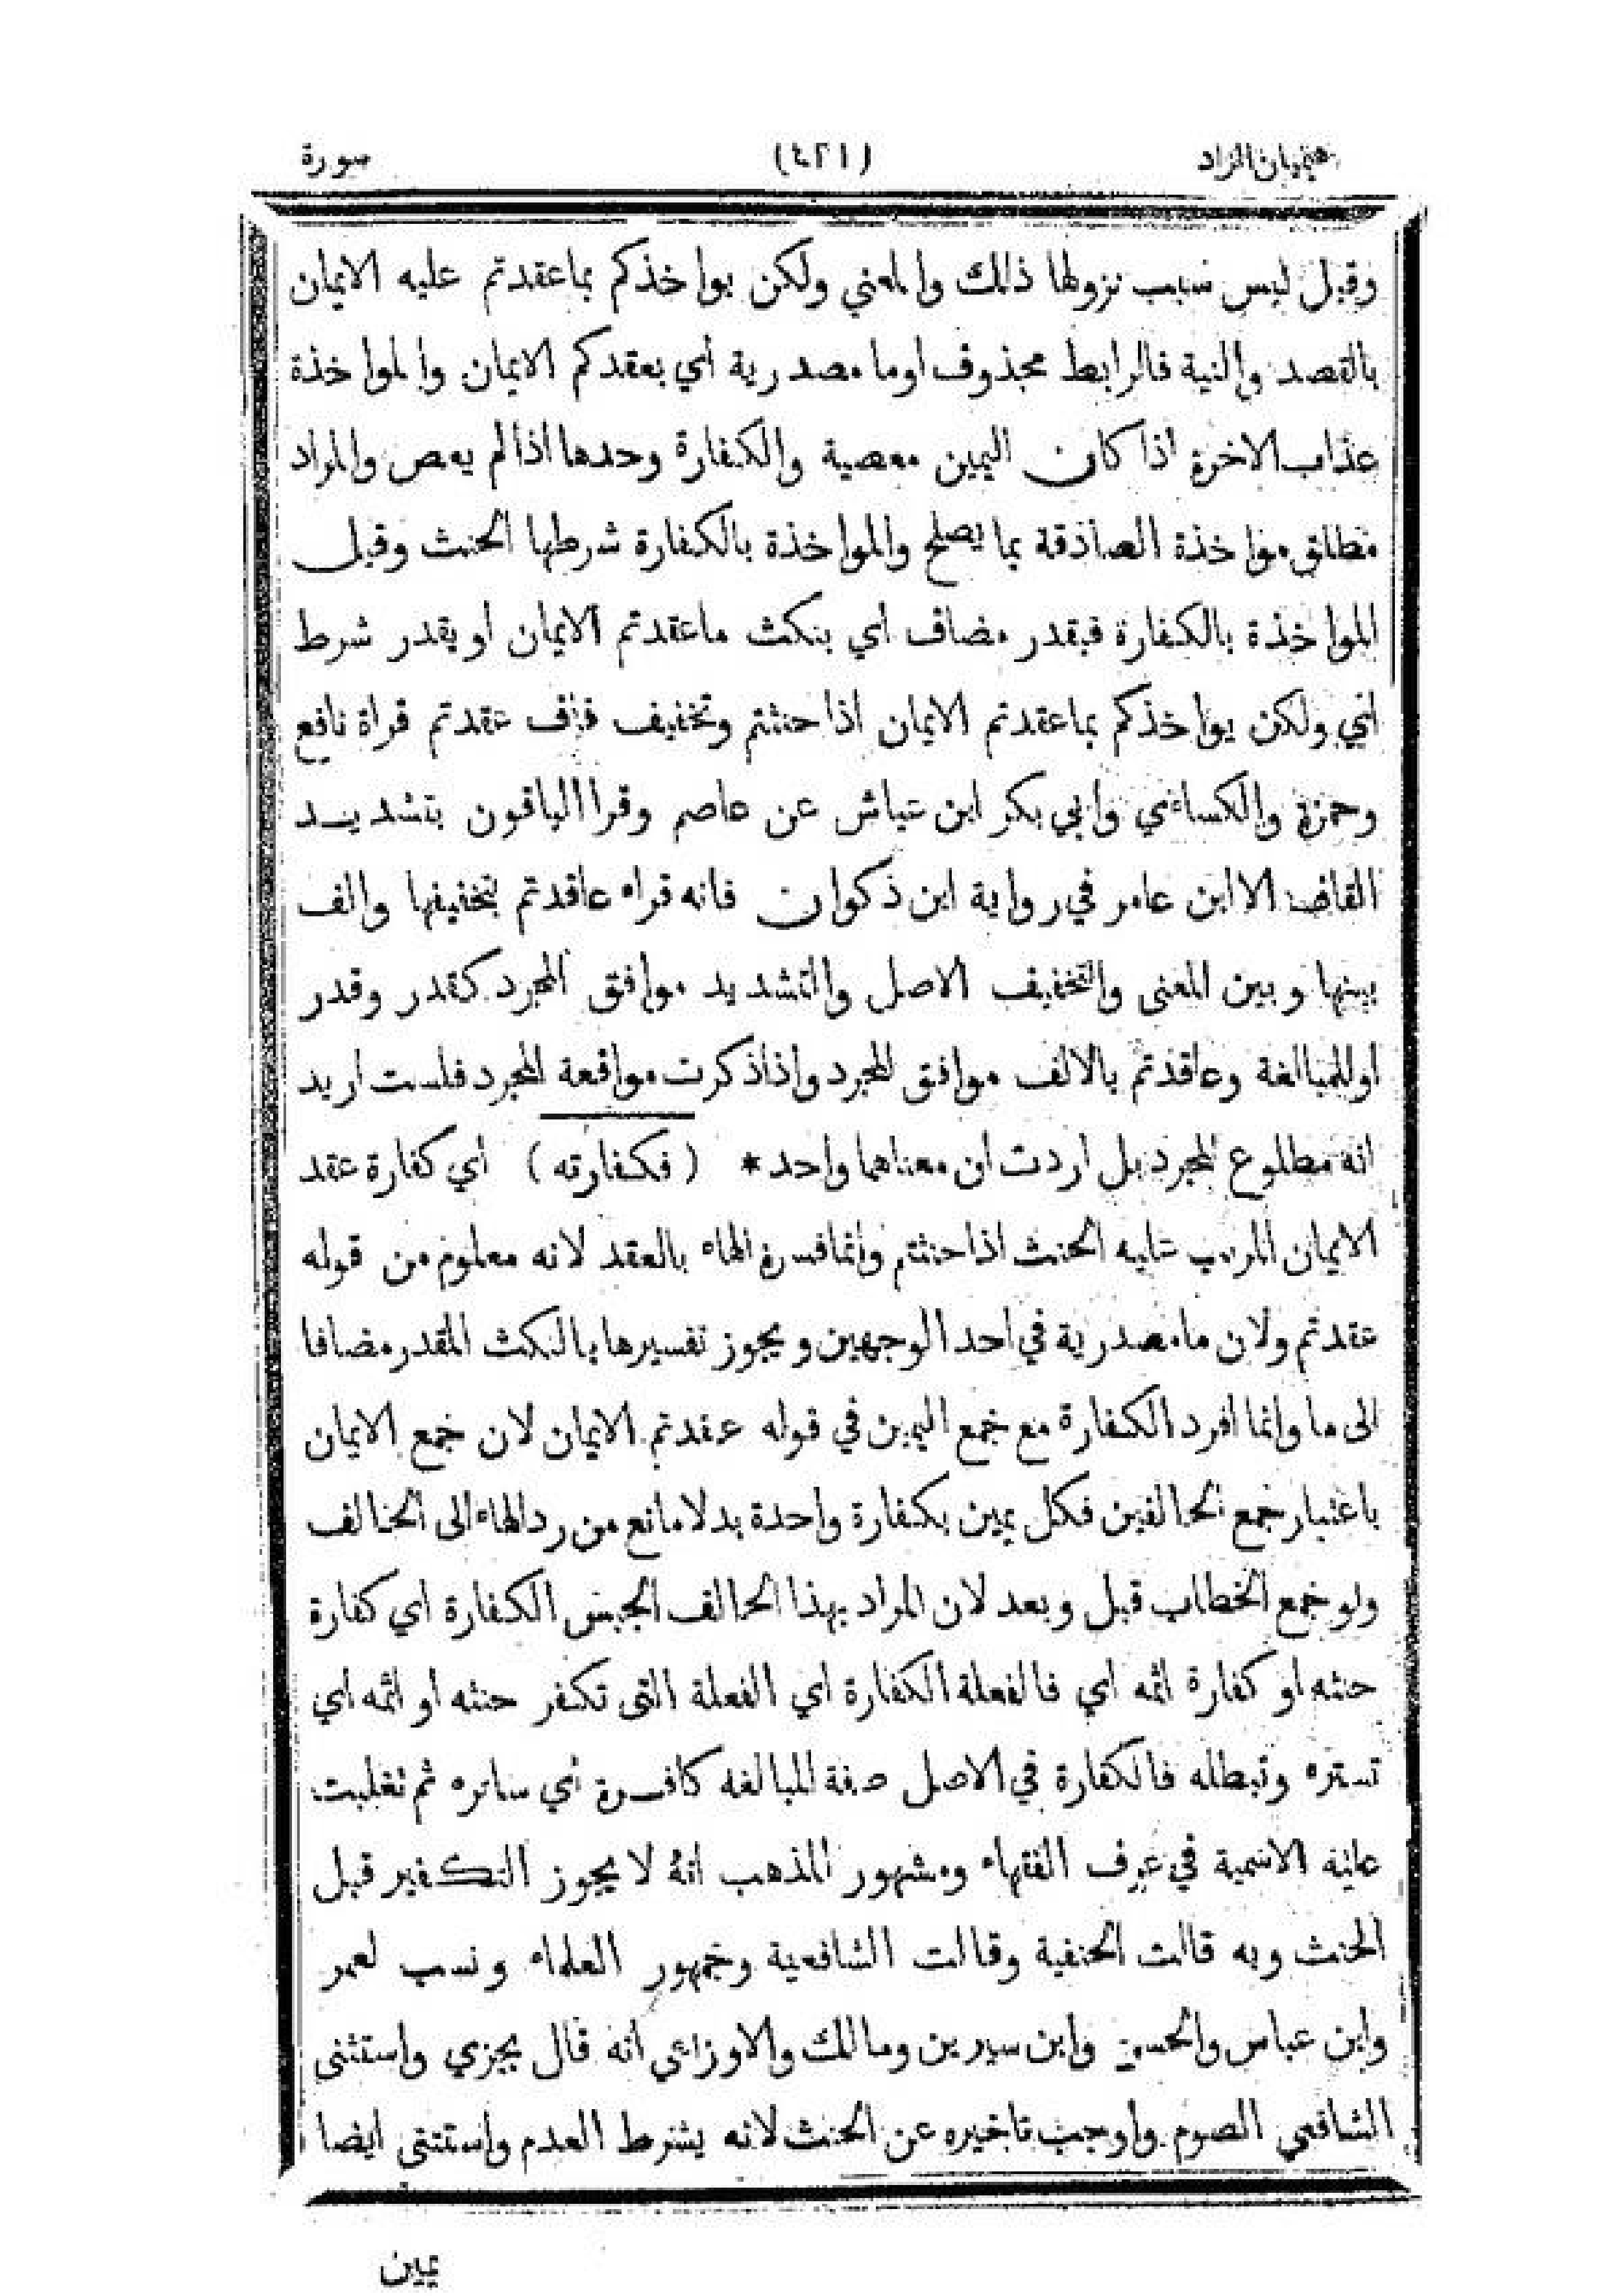 هيميان الزاد (٤٢١) سورة
وقيل ليس سبب نزولها ذلك والمعني ولكن يواخذكم بماعقدتم عليه الايمان
بالقصد والنية فالرابط محذوف اوما مصدرية أي بعقدكم الايمان والمواخذة
عذاب الاخرة اذا كان اليمين معصية والكفارة وحدها اذالم يعص والمراد
مطلق مواخذة الصادقة بما يصلح والمواخذة بالكفارة شرطها الحنث وقيل
المواخذة بالكفارة فيقدر مضاف أي بنكث ماعقدتم الايمان او يقدر شرط
اي ولكن يواخذكم بماعقدتم الايمان اذا حنثتم وتخفيف قاف عقدتم قراة نافع
وحمزة والكساءي وابي بكر ابن عياش عن عاصم وقرا الباقون بتشديد
القاف الا ابن عامر في رواية ابن ذكوان فانه قراه عاقدتم بتخفيفها والف
بينها وبين المعنى والتخفيف الاصل والتشديد موافق المجرد كقدر وقدر
اوللمبالغة وعاقدتم بالالف موافق للمجرد واذاذكرت موافعة المجرد فلست اريد
انه مطلوع المجرد بل اردت ان معناهما واحد * (فكفارته) أي كفارة عقد
الايمان المرتب عليه الحنث اذا حنثتم وانمافسرة الهاء بالعقد لانه معلوم من قوله
عقدتم ولان مامصدرية في احد الوجهين ويجوز تفسيرها بالنكث المقدر مضافا
الى ما وانما افرد الكفارة مع جمع اليمين في قوله عقدتم الايمان لان جمع الايمان
باعتبار جمع الحالفين فكل يمين بكفارة واحدة بدلامانع من ردالهاء الى الحالف
ولو جمع الخطاب قبل وبعد لان المراد بهذا الحالف الجبس الكفارة اي كفارة
حنثه او كفارة اثمه اي فالفعلة الكفارة اي الفعلة التى تكفر حنثه او اثمه اي
تستره وتبطله فالكفارة في الاصل صفة المبالغه كافرة أي ساتره ثم تغلبت
عليه الاسمية في عرف الفقهاء ومشهور المذهب انه لا يجوز التكفير قبل
الحنث وبه قالت الحنفية وقالت الشافعية وجمهور العلماء ونسب لعمر
وابن عباس والحسن وابن سيرين ومالك والاوزاعي انه قال يجزي واستثنى
الشافعي الصوم واوجب تاخيره عن الحنث لانه يشترط العدم واستثنى ايضا
يمين